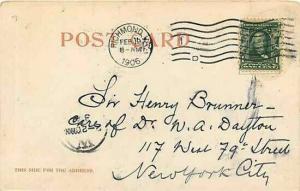 POST CARD
RICHMOND, KY.
FEB
8-AM
1906
Sir Henry Brunner-
Care of Dr. W. A. Dayton
117 West 79th Street
New York City
THIS SIDE FOR THE ADDRESS.